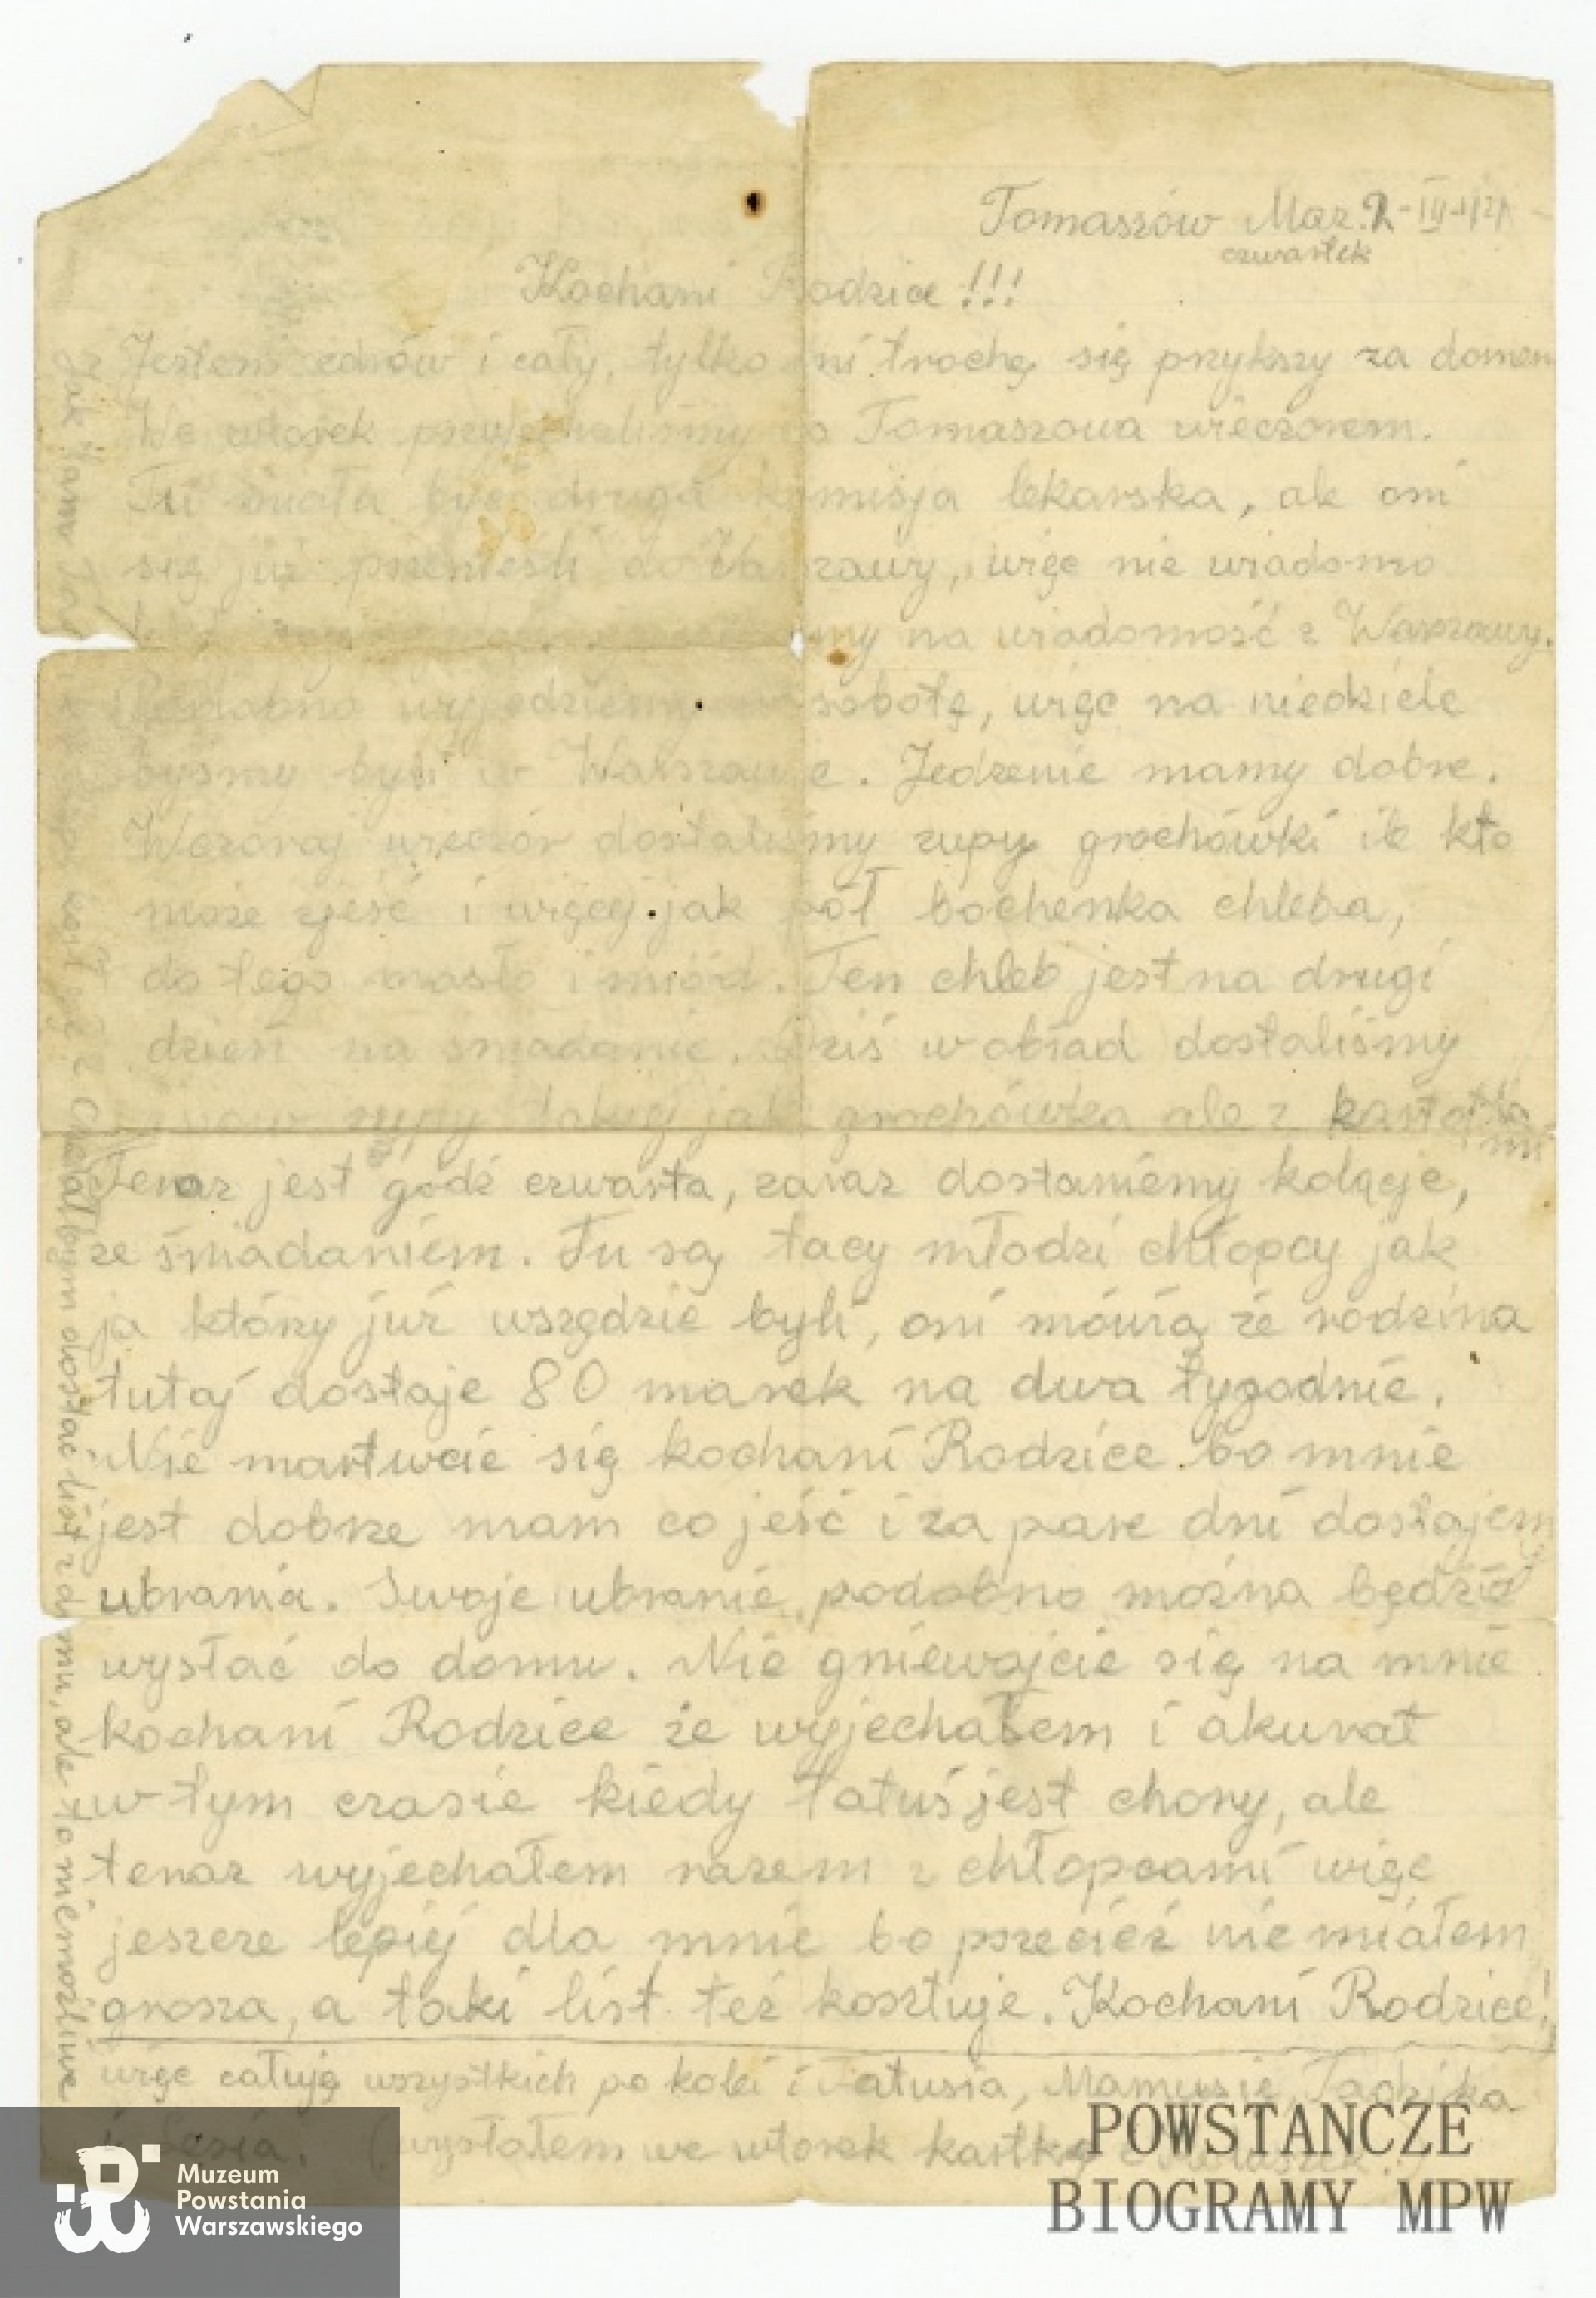 Tomaszów Maz.
czwartek
Kochani Rodzice !!!
Jestem zdrów i cały, tylko mi trochę się przykszy za domem
We wtorek przyjechaliśmy do Tomaszowa wieczorem.
Tu miała być druga komisja lekarska, ale oni
się już przenieśli do Warszawy, więc nie wiadomo
na wiadomość z Warszawy.
Podobno wyjedziemy w sobotę, więc na niedziele
byśmy byli w Warszawie. Jedzenie mamy dobre.
Wczoraj wieczór dostaliśmy zupy grochówki ile kto
może zjeść i więcej jak pół bochenka chleba,
do tego masło i miód. Ten chleb jest na drugi
dzień na śniadanie. Dziś w obiad dostaliśmy
znow zupy takiej jak grochówka ale z kartoflami
Teraz jest godź czwarta, zaraz dostaniemy kolacje,
ze śniadaniem. Tu są tacy młodzi chłopcy jak
ja który już wszędzie byli, oni mówią że rodzina
tutaj dostaje 80 marek na dwa tygodnie.
Nie martwcie się kochani Rodzice bo mnie
jest dobrze mam co jeść i za pare dni dostajemy
ubrania. Swoje ubranie podobno można będzie
wysłać do domu. Nie gniewajcie się na mnie
kochani Rodzice że wyjechałem i akurat
w tym czasie kiedy tatuś jest chory, ale
teraz wyjechałem razem z chłopcami więc
jeszcze lepiej dla mnie bo pszecież nie miałem
grosza, a taki list też kosztuje. Kochani Rodzice!
więc całuję wszystkich po kolei i Tatusia, Mamusie, Tadzika
(wysłałem we wtorek kartkę
Jak tam Chciałbym dostać list z domu, ale to niemożliwe
Muzeum
Powstania
Warszawskiego
POWSTAŃCZE
BIOGRAMY MPW